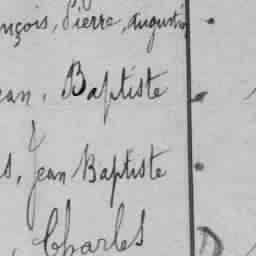 nçois, Pierre, Augustin
ean, Baptiste
s, Jean Baptiste
, Charles